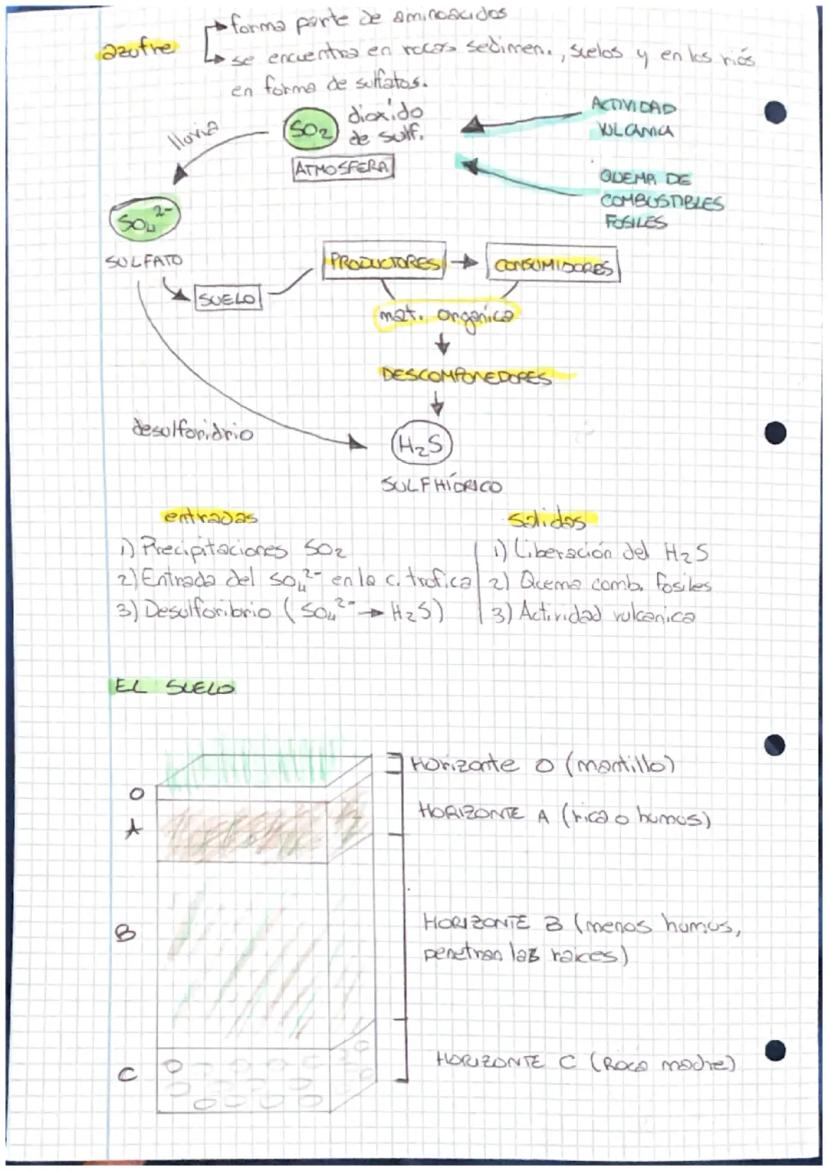 forma parte de aminoacidos
azufre
se encuentra en rocas sedimen., suelos y en los riós
en forma de sulfatos.
lluvia
SO2
dioxido
de sulf.
ATMOSFERA
ACTIVIDAD
VULCANICA
QUEMA DE
COMBUSTIBLES
FOSILES
SO4 2-
SULFATO
SUELO
PRODUCTORES
CONSUMIDORES
mat. organica
DESCOMPONEDORES
desulforidrio
H2S
SULFHÍDRICO
entradas
1) Precipitaciones SO2
2) Entrada del SO4 2- en la c. trofica
3) Desulforibrio (SO4 2- → H2S)
salidas
1) Liberación del H2S
2) Quema comb. fosiles
3) Actividad vulcanica
EL SUELO
O
A
B
C
Horizonte O (mantillo)
HORIZONTE A (rica o humus)
HORIZONTE B (menos humus,
penetran las raices)
HORIZONTE C (Roca madre)